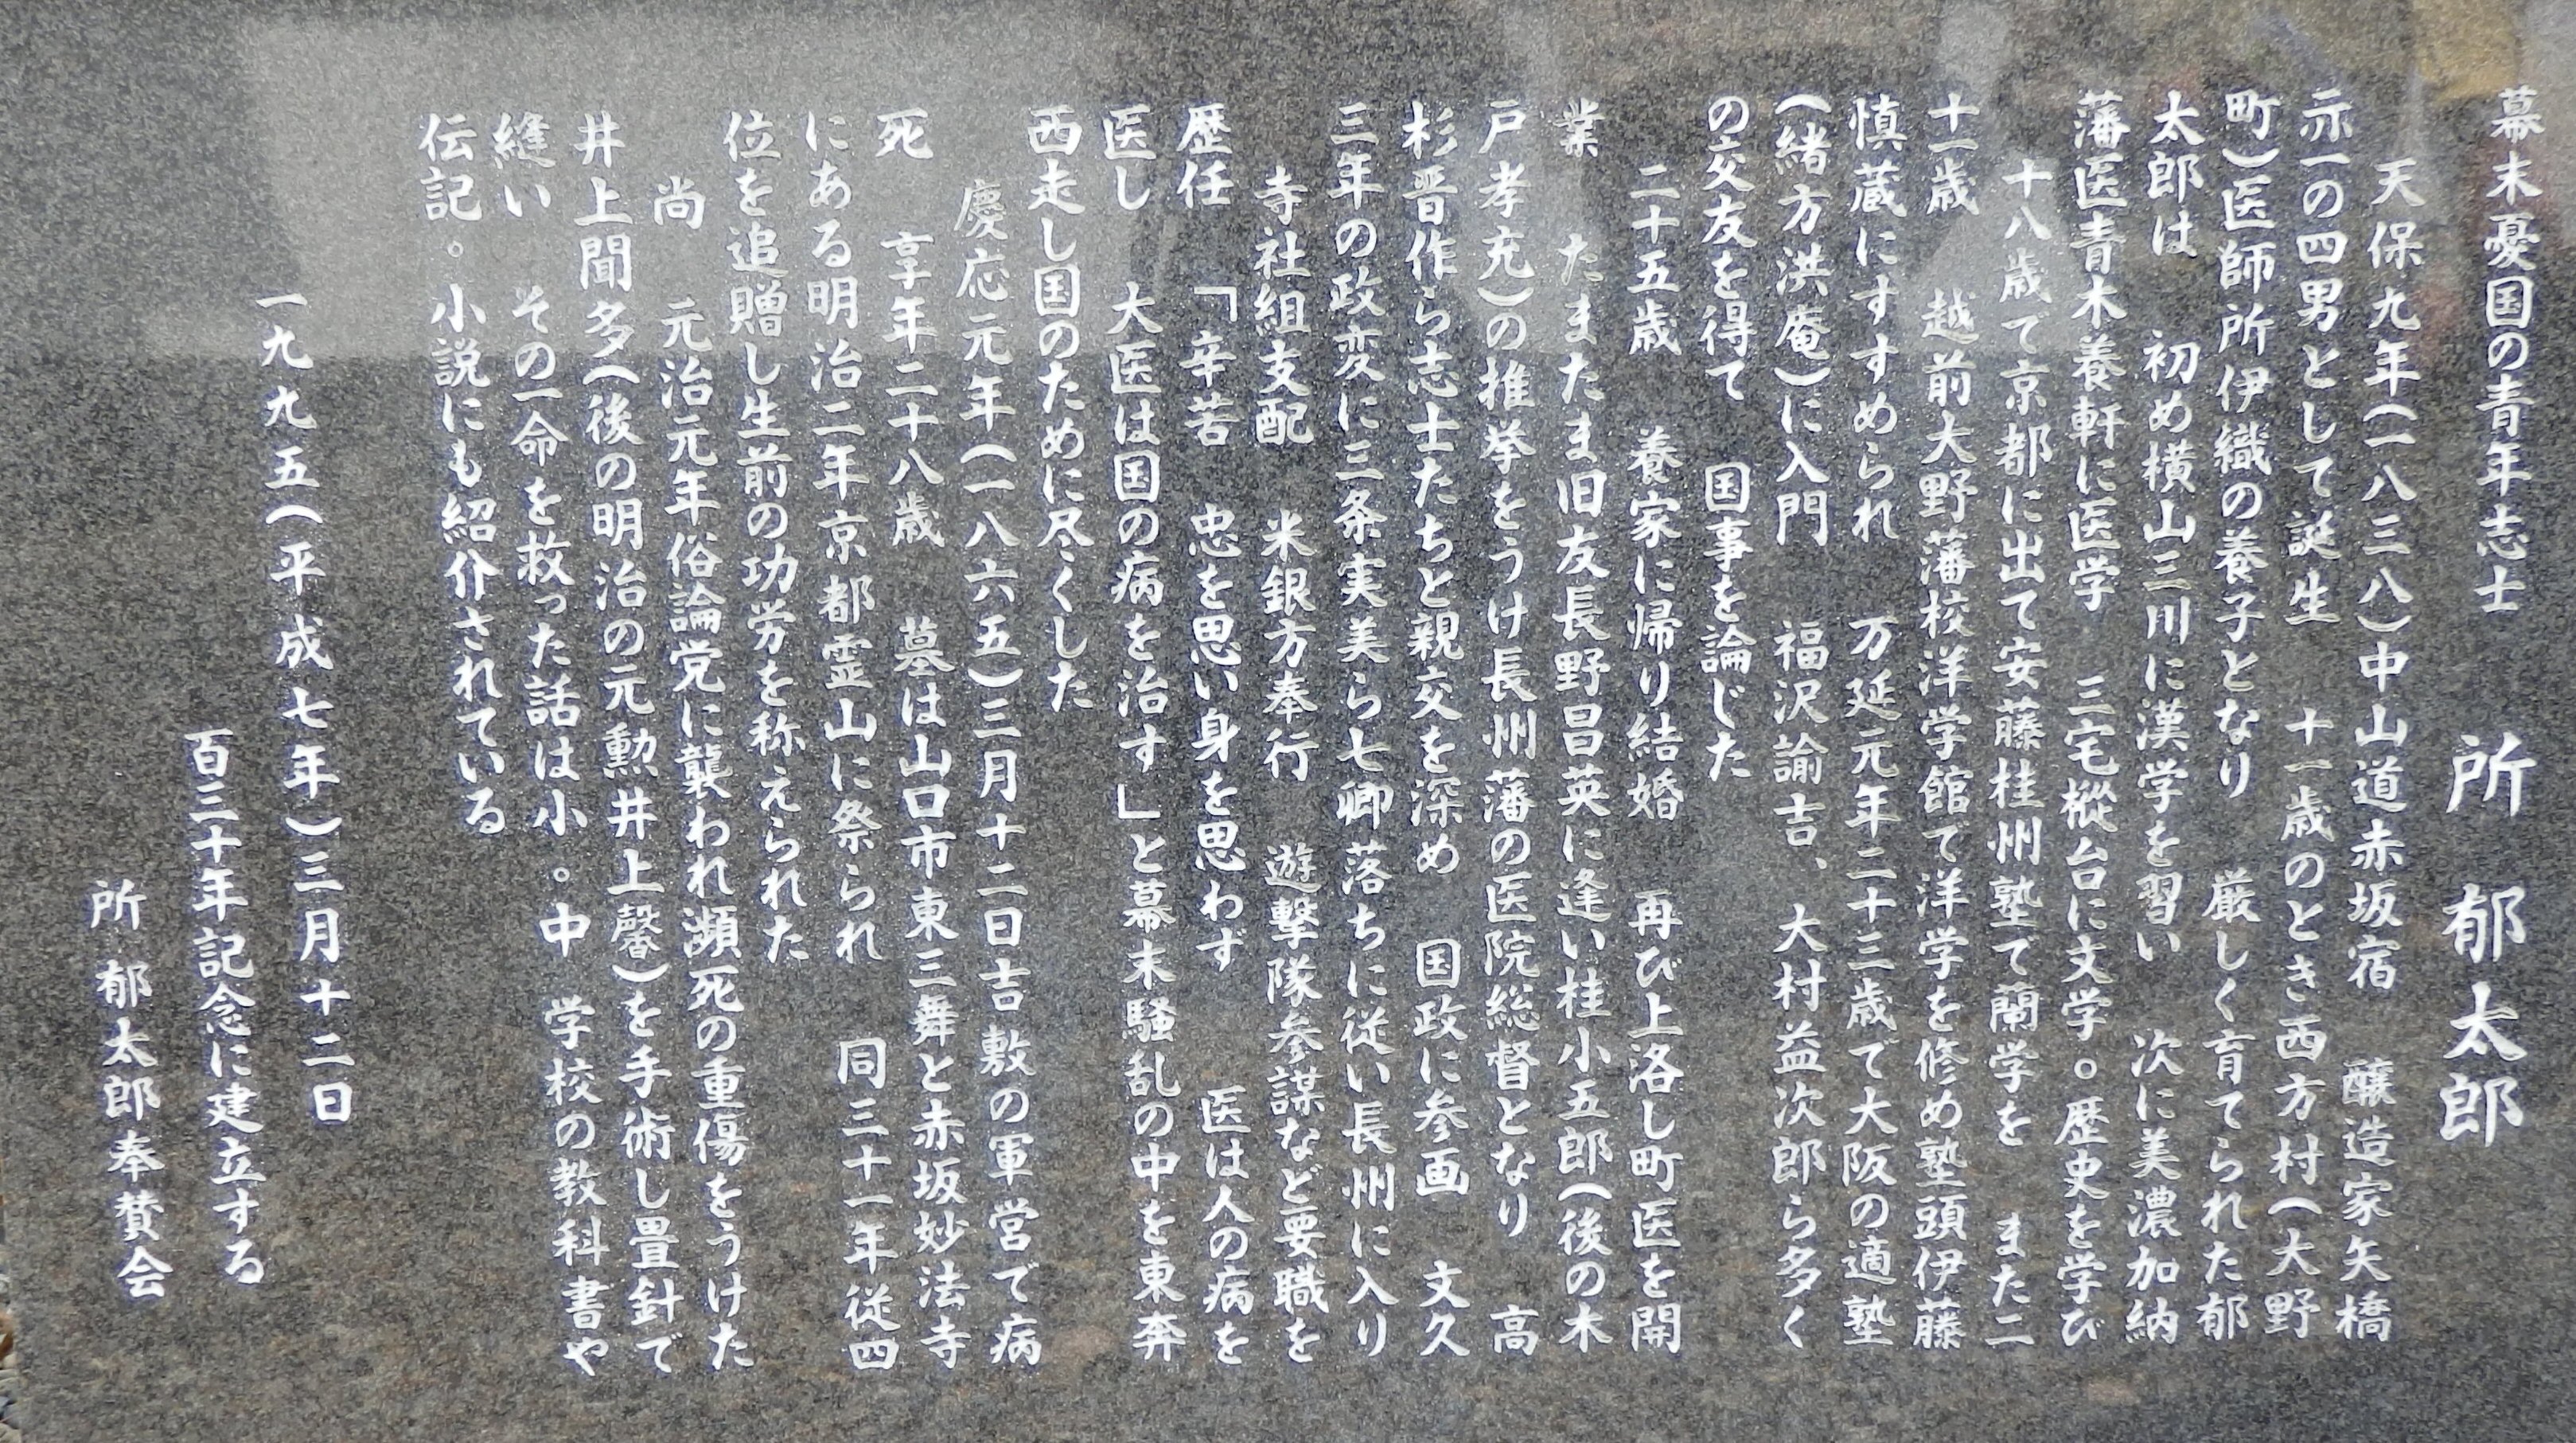 幕末憂国の青年志士　所　郁太郎
天保九年(一八三八)中山道赤坂宿　醸造家矢橋
亦一の四男として誕生　十一歳のとき西方村(大野
町)医師所伊織の養子となり　厳しく育てられた郁
太郎は　初め横山三川に漢学を習い　次に美濃加納
藩医青木養軒に医学　三宅樅台に文学。歴史を学び
十八歳で京都に出て安藤桂州塾で蘭学を　また二
十一歳　越前大野藩校洋学館て洋学を修め塾頭伊藤
慎蔵にすすめられ　万延元年二十三歳で大阪の適塾
(緒方洪庵)に入門　福沢諭吉、大村益次郎ら多く
の交友を得て　国事を論じた
二十五歳　養家に帰り結婚　再び上洛し町医を開
業　たまたま旧友長野昌英に逢い桂小五郎(後の木
戸孝充)の推挙をうけ長州藩の医院総督となり　高
杉晋作ら志士たちと親交を深め　国政に参画　文久
三年の政変に三条実美ら七卿落ちに従い長州に入り
寺社組支配　米銀方奉行　遊撃隊参謀など要職を
歴任　「辛苦　忠を思い身を思わず　医は人の病を
医し　大医は国の病を治す」と幕末騒乱の中を東奔
西走し国のために尽くした
慶応元年(一八六五)三月十二日吉敷の軍営で病
死　享年二十八歳　墓は山口市東三舞と赤坂妙法寺
にある明治二年京都霊山に祭られ　同三十一年従四
位を追贈し生前の功労を称えられた
尚　元治元年俗論党に襲われ瀕死の重傷をうけた
井上聞多(後の明治の元勲井上馨)を手術し畳針で
縫い　その一命を救った話は小。中　学校の教科書や
伝記。小説にも紹介されている
一九九五(平成七年)三月十二日
百三十年記念に建立する
所　郁太郎奉賛会